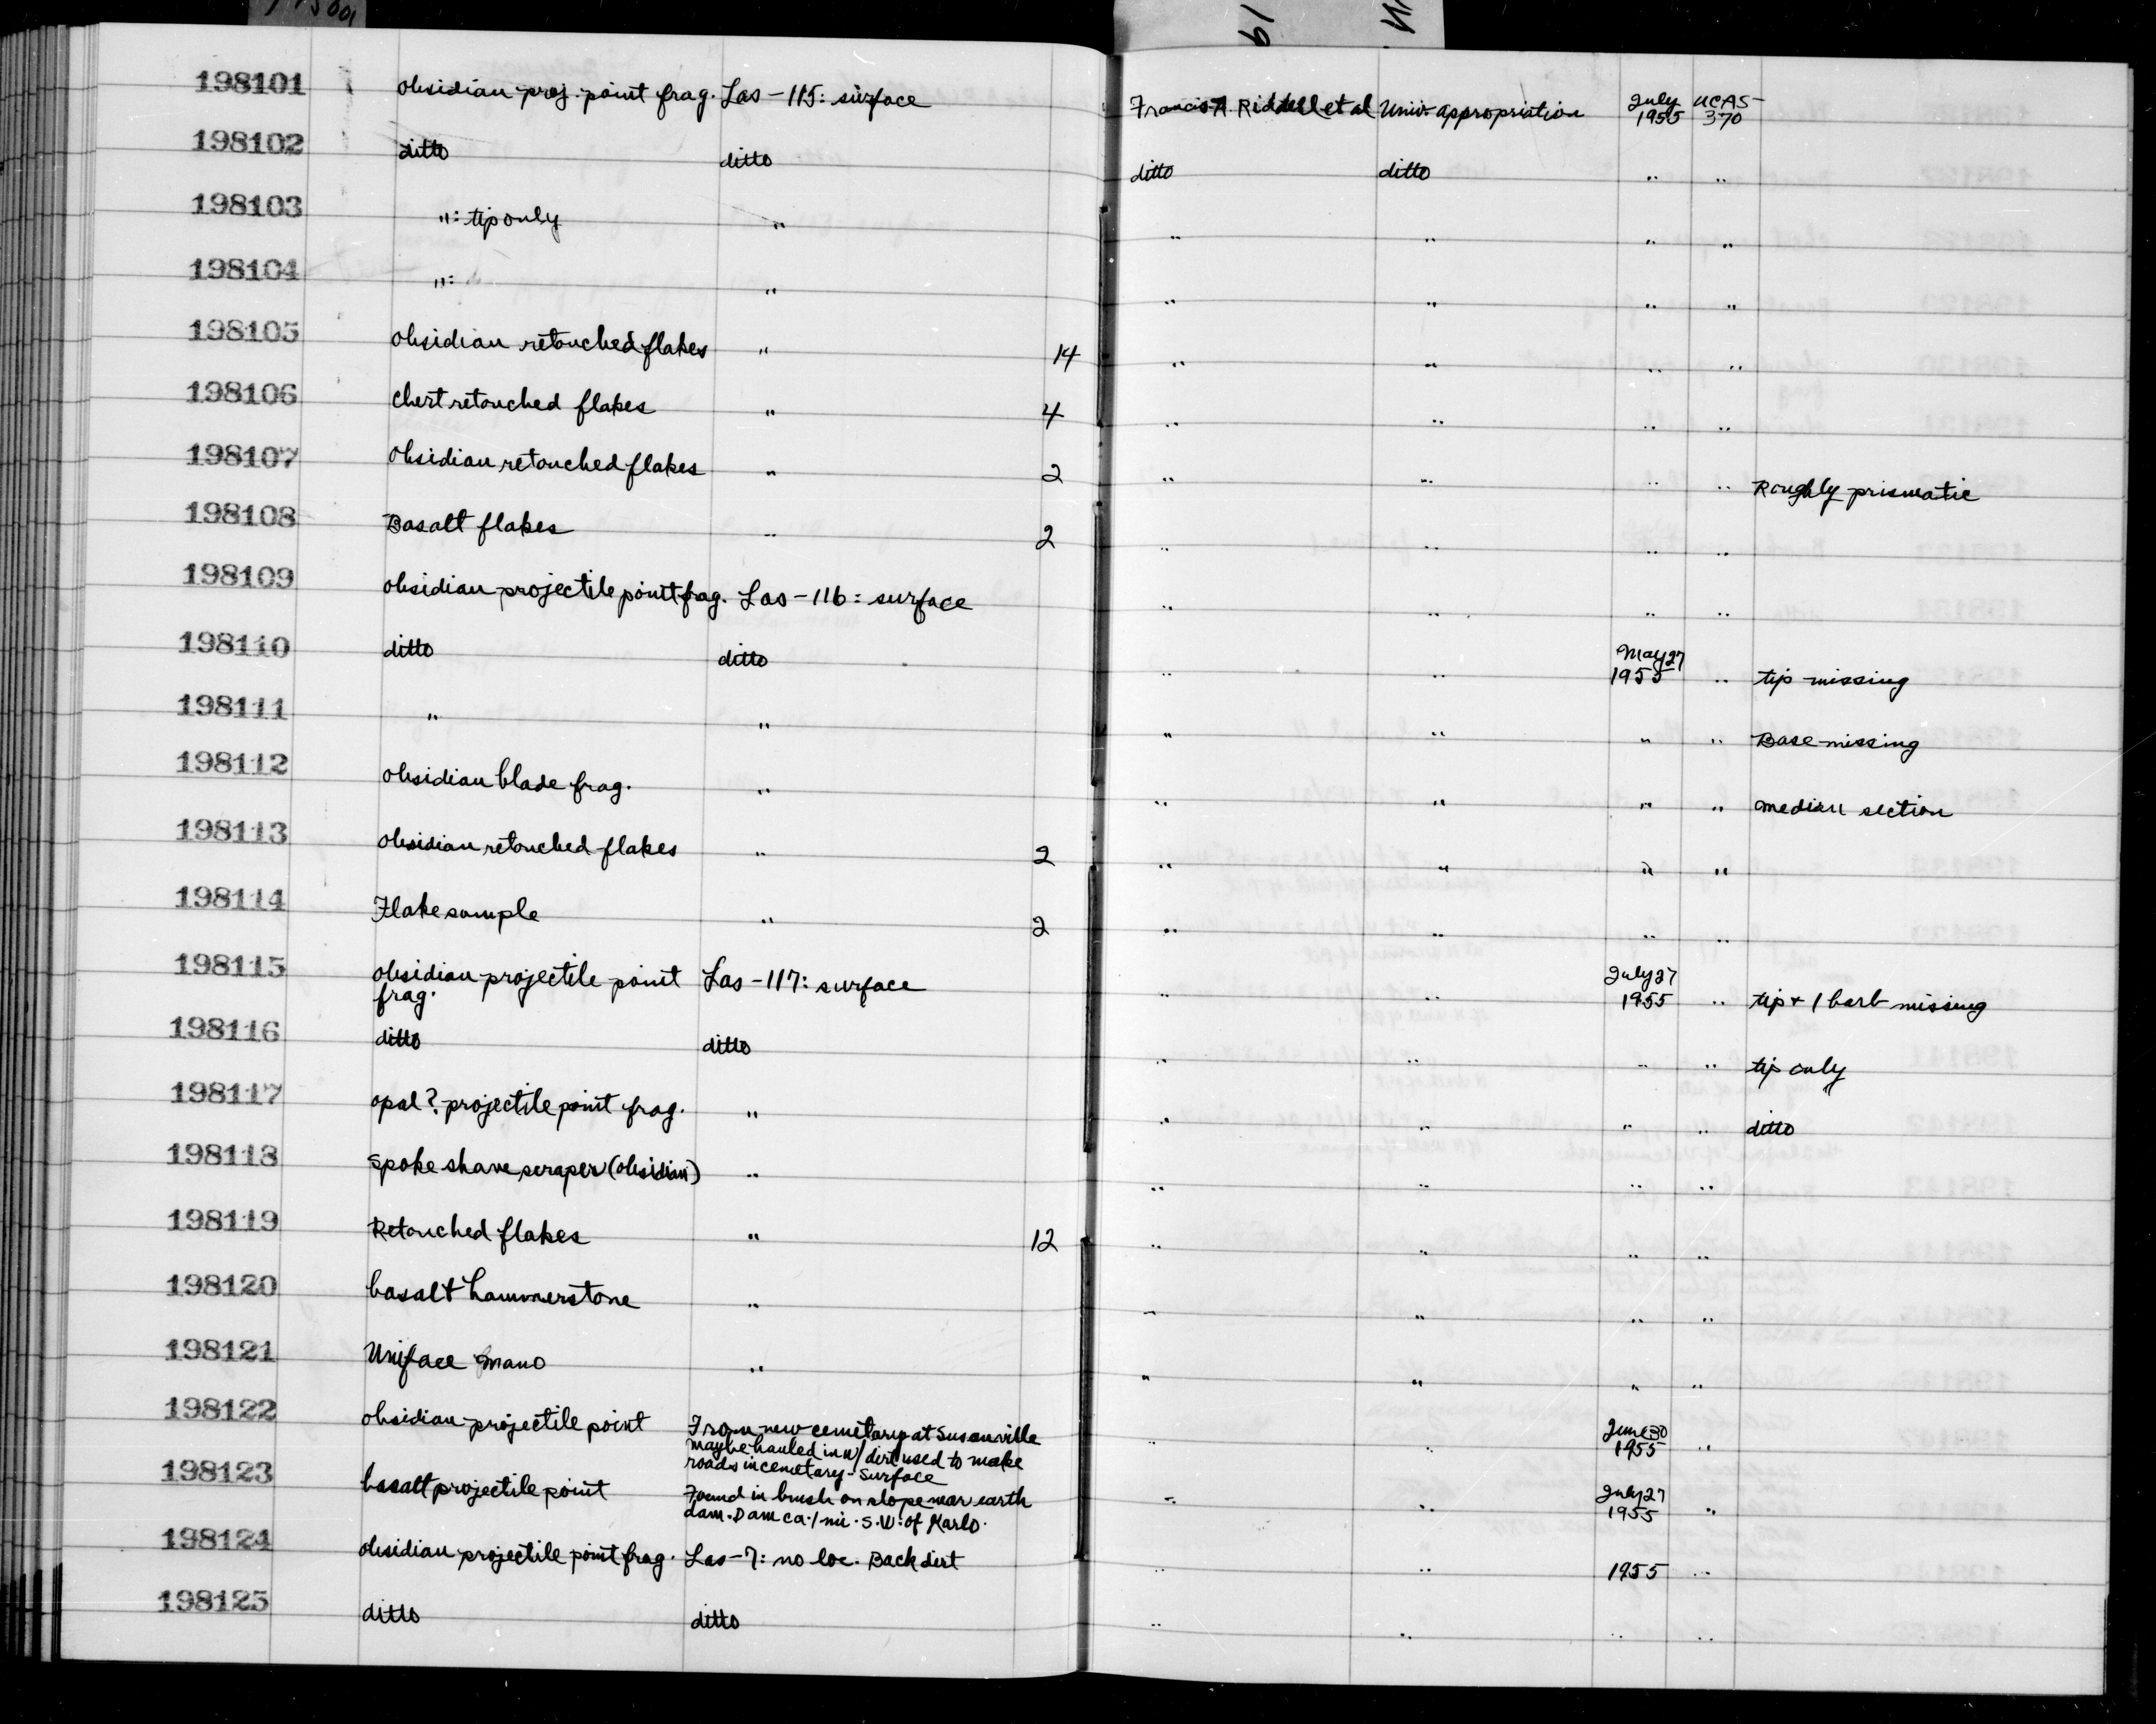 198101 obsidian proj. point frag. Las-115: surface Francis A. Riddell et al Univ. appropriation July 1955 UCAS-370
198102 ditto ditto ditto ditto " "
198103 ": tip only " " " " "
198104 ": " " " " "
198105 obsidian retouched flakes " 14 " " " "
198106 chert retouched flakes " 4 " " " "
198107 obsidian retouched flakes " 2 " " " " Roughly prismatic
198108 Basalt flakes " 2 " " " "
198109 obsidian projectile point frag. Las-116: surface " " " "
198110 ditto ditto " " May 27 1955 " tip missing
198111 " " " " " " Base missing
198112 obsidian blade frag. " " " " " median section
198113 obsidian retouched flakes " 2 " " " "
198114 Flake sample " 2 " " " "
198115 obsidian projectile point frag. Las-117: surface " " July 27 1955 " tip + 1 barb missing
198116 ditto ditto " " " " tip only
198117 opal? projectile point frag. " " " " " ditto
198118 spoke shave scraper (obsidian) " " " " "
198119 Retouched flakes " 12 " " " "
198120 basalt hammerstone " " " " "
198121 Uniface mano " " " " "
198122 obsidian projectile point From new cemetary at Susanville
maybe hauled in w/ dirt used to make
roads in cemetary - surface " " June 30 1955 "
198123 basalt projectile point Found in brush on slope near earth
dam. Dam ca. 1 mi. S.W. of Karlo. " " July 27 1955 "
198124 obsidian projectile point frag. Las-7: no loc. Back dirt " " 1955 "
198125 ditto ditto " " " "